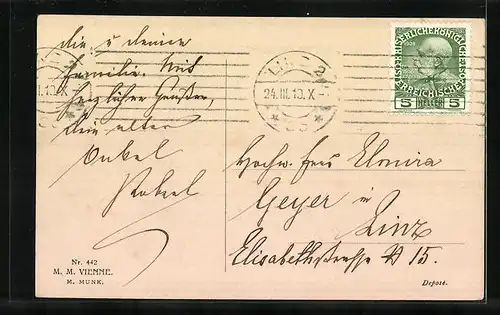 dir u deiner
Familie. Mit
herzlichen Grüßen,
dein alter
Onkel
LINZ 2
24. III. 10. X
KAISERLICHEKÖNIGLICHE
ÖSTERREICHISCHE
1908
5 HELLER 5
Elmira
Geyer in
Linz
Elisabethstrasse 15.
Nr. 442
M. M. VIENNE.
M. MUNK.
Deposé.